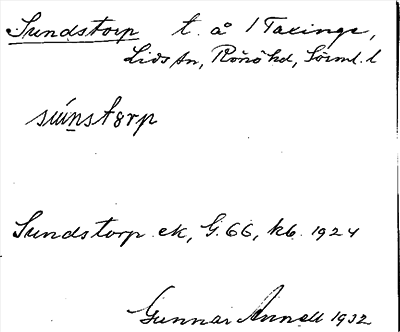 Sundstorp t. å 1 Taxinge,
Lids sn, Rönö hd, Sörml. l
súṇstɵrp
Sundstorp ek, G.66, kb. 1924
Gunnar Annell 1932